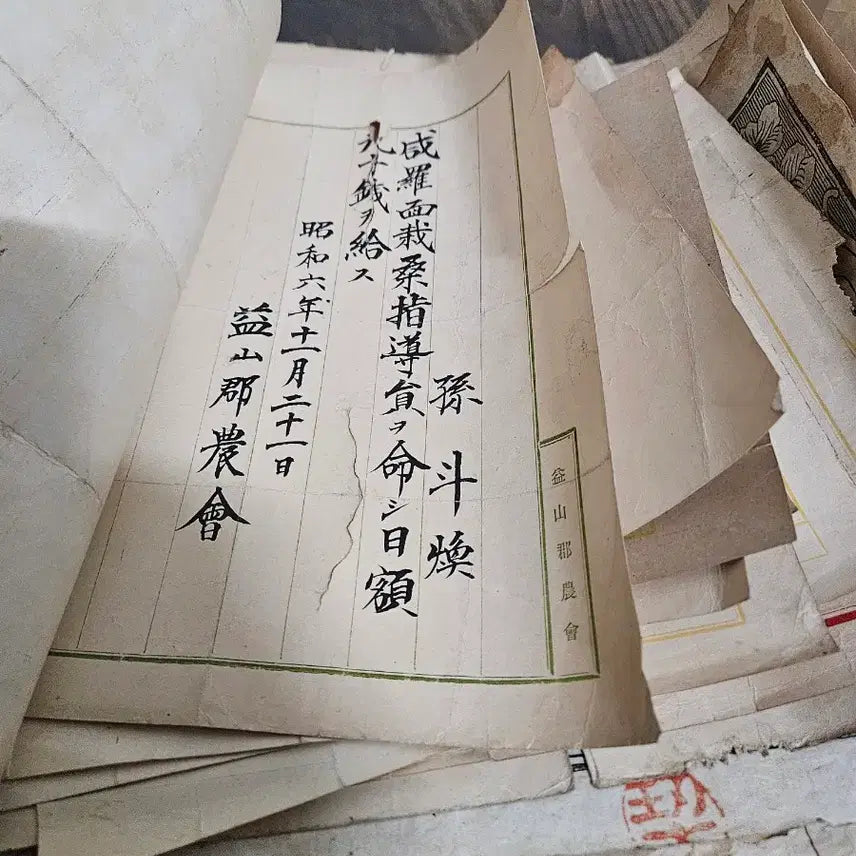 孫斗煥
咸羅面栽桑指導員ヲ命シ日額
九十銭ヲ給ス
昭和六年十一月二十一日
益山郡農會
益山郡農會